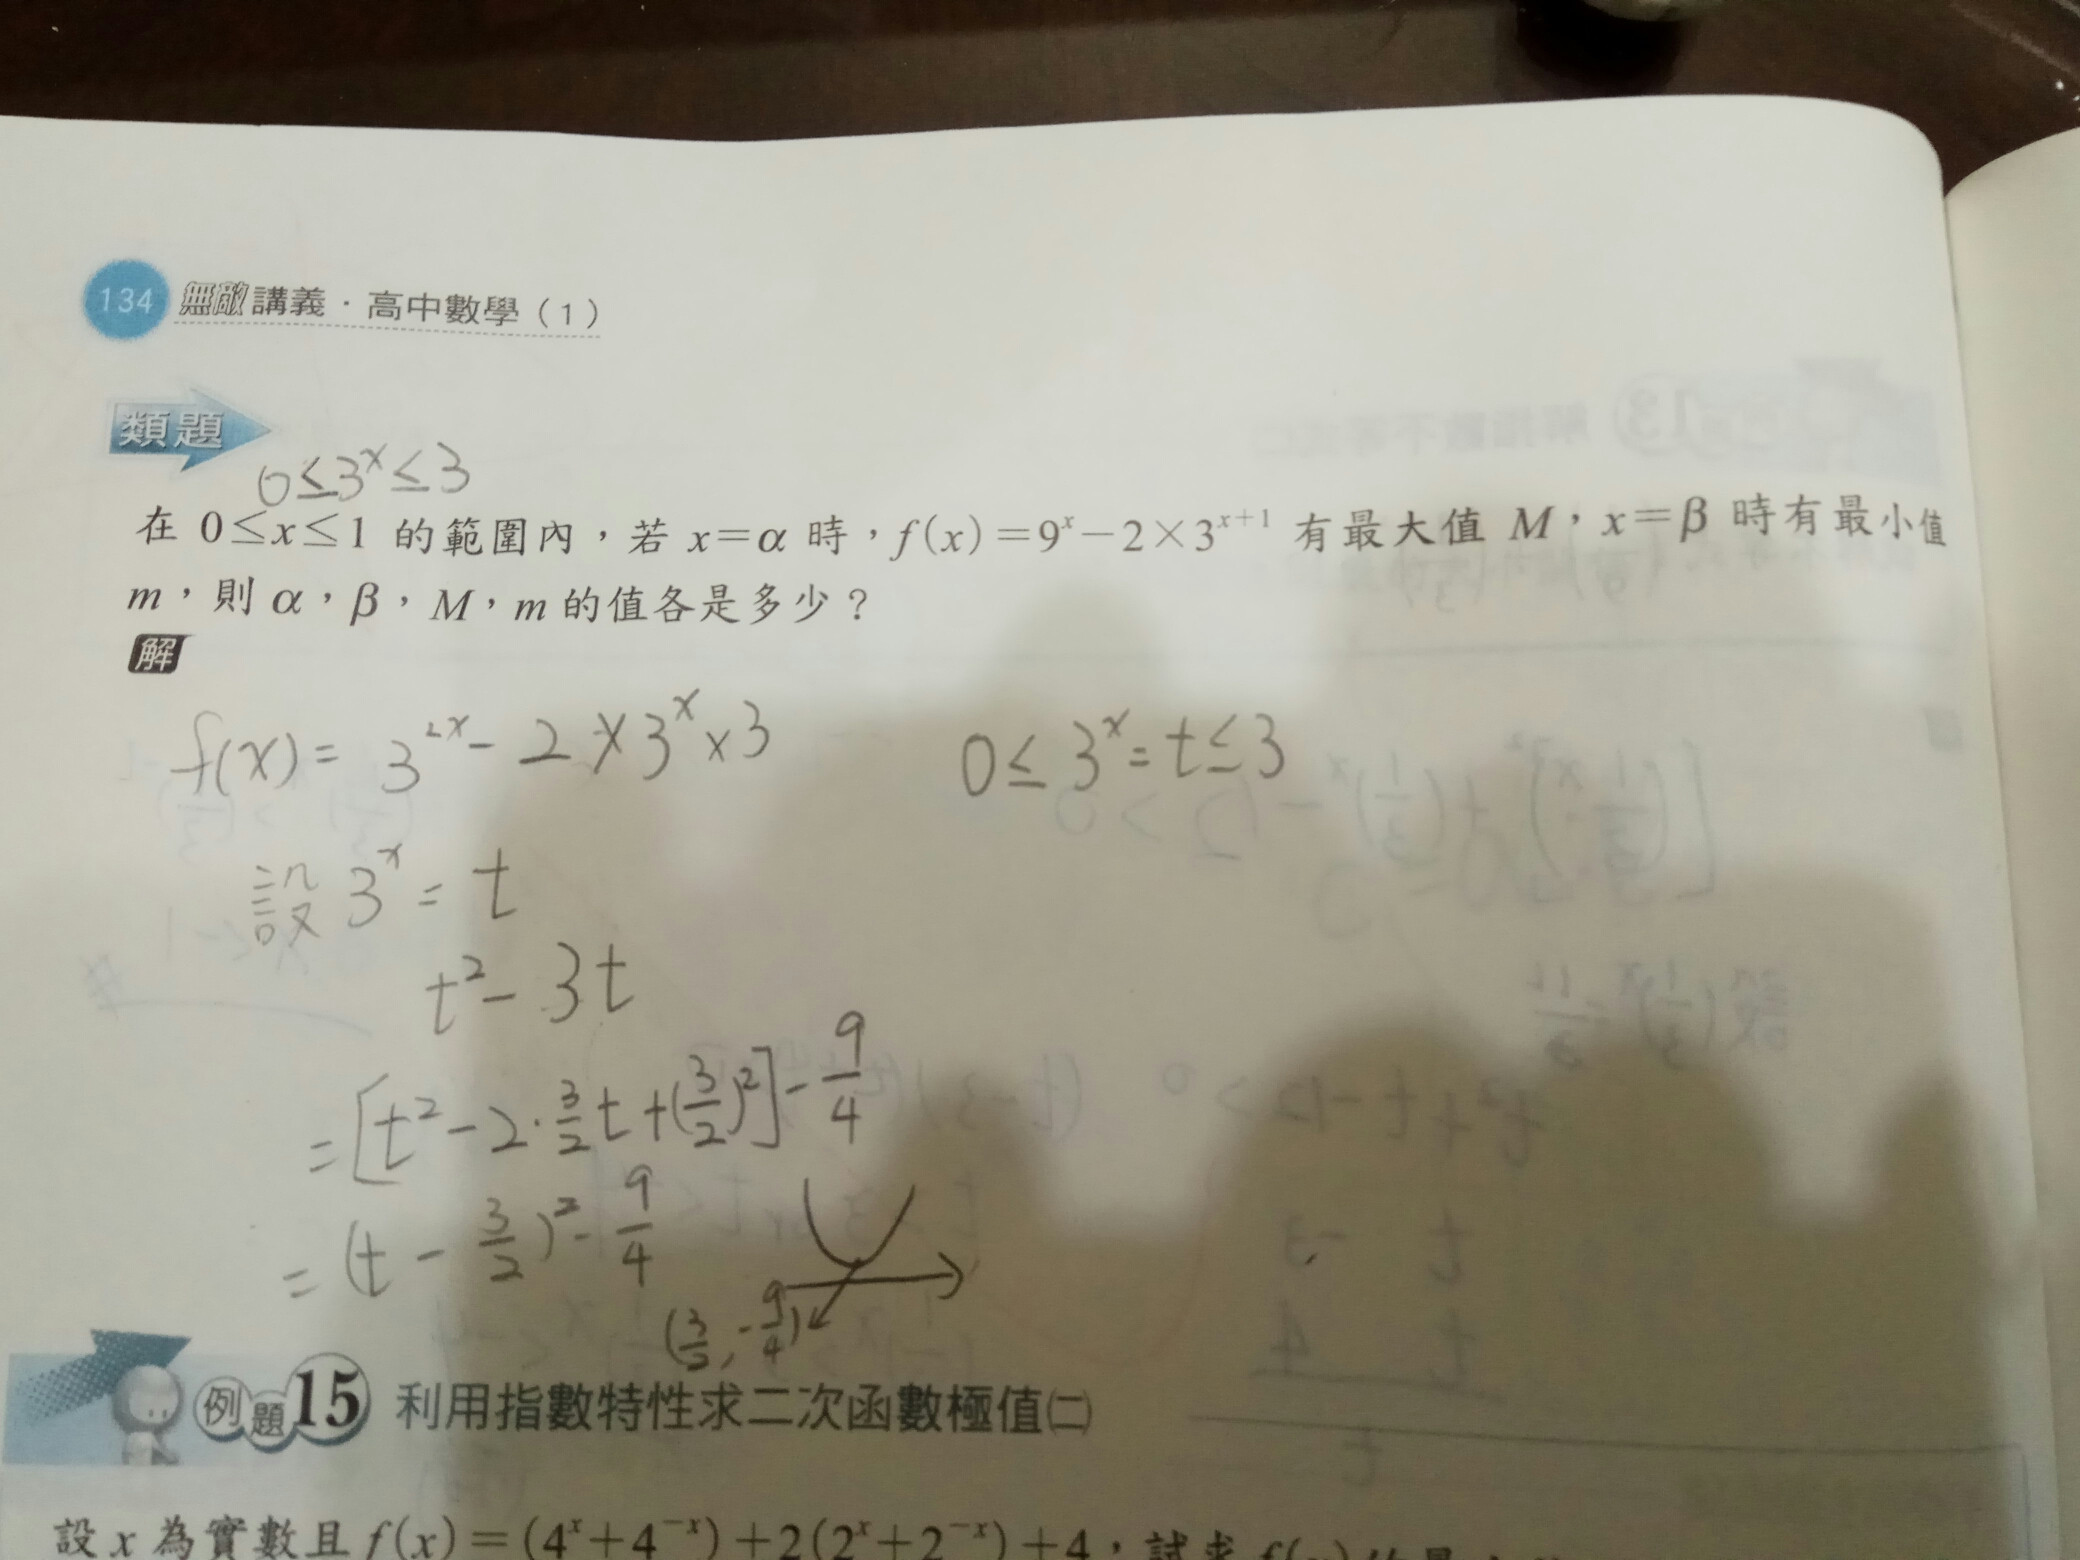 134 無敵講義·高中數學(1)
類題
0≤3^x≤3
在 0≤x≤1 的範圍內，若 x=α 時，f(x)=9^x−2×3^{x+1} 有最大值 M，x=β 時有最小值
m，則 α，β，M，m 的值各是多少？
解
f(x)= 3^{2x} - 2×3^x×3
0≤3^x=t≤3
設 3^x = t
t²-3t
=[t²-2·\frac{3}{2}t+(\frac{3}{2})²]-\frac{9}{4}
=(t-\frac{3}{2})²-\frac{9}{4}
(\frac{3}{2}, -\frac{9}{4})
例題15 利用指數特性求二次函數極值(二)
設 x 為實數且 f(x)=(4^x+4^{−x})+2(2^x+2^{−x})+4，試求 f(x)